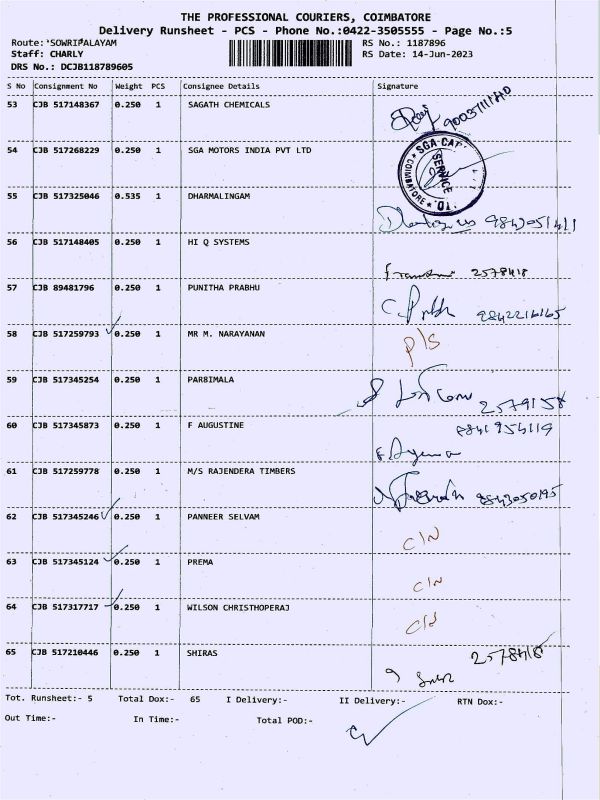 THE PROFESSIONAL COURIERS, COIMBATORE
Delivery Runsheet - PCS - Phone No.:0422-3505555 - Page No.:5
Route: SOWRIPALAYAM RS No.: 1187896
Staff: CHARLY RS Date: 14-Jun-2023
DRS No.: DCJB118789605
S No Consignment No Weight PCS Consignee Details Signature
53 CJB 517148367 0.250 1 SAGATH CHEMICALS
54 CJB 517268229 0.250 1 SGA MOTORS INDIA PVT LTD SGA CAR SERVICE COIMBATORE
55 CJB 517325046 0.535 1 DHARMALINGAM
56 CJB 517148405 0.250 1 HI Q SYSTEMS 2578418
57 CJB 89481796 0.250 1 PUNITHA PRABHU
58 CJB 517259793 0.250 1 MR M. NARAYANAN P/S
59 CJB 517345254 0.250 1 PAR8IMALA 2579158
60 CJB 517345873 0.250 1 F AUGUSTINE
61 CJB 517259778 0.250 1 M/S RAJENDERA TIMBERS 9843050195
62 CJB 517345246 0.250 1 PANNEER SELVAM C/N
63 CJB 517345124 0.250 1 PREMA C/N
64 CJB 517317717 0.250 1 WILSON CHRISTHOPERAJ
65 CJB 517210446 0.250 1 SHIRAS 2578418
Tot. Runsheet:- 5 Total Dox:- 65 I Delivery:- II Delivery:- RTN Dox:-
Out Time:- In Time:- Total POD:-